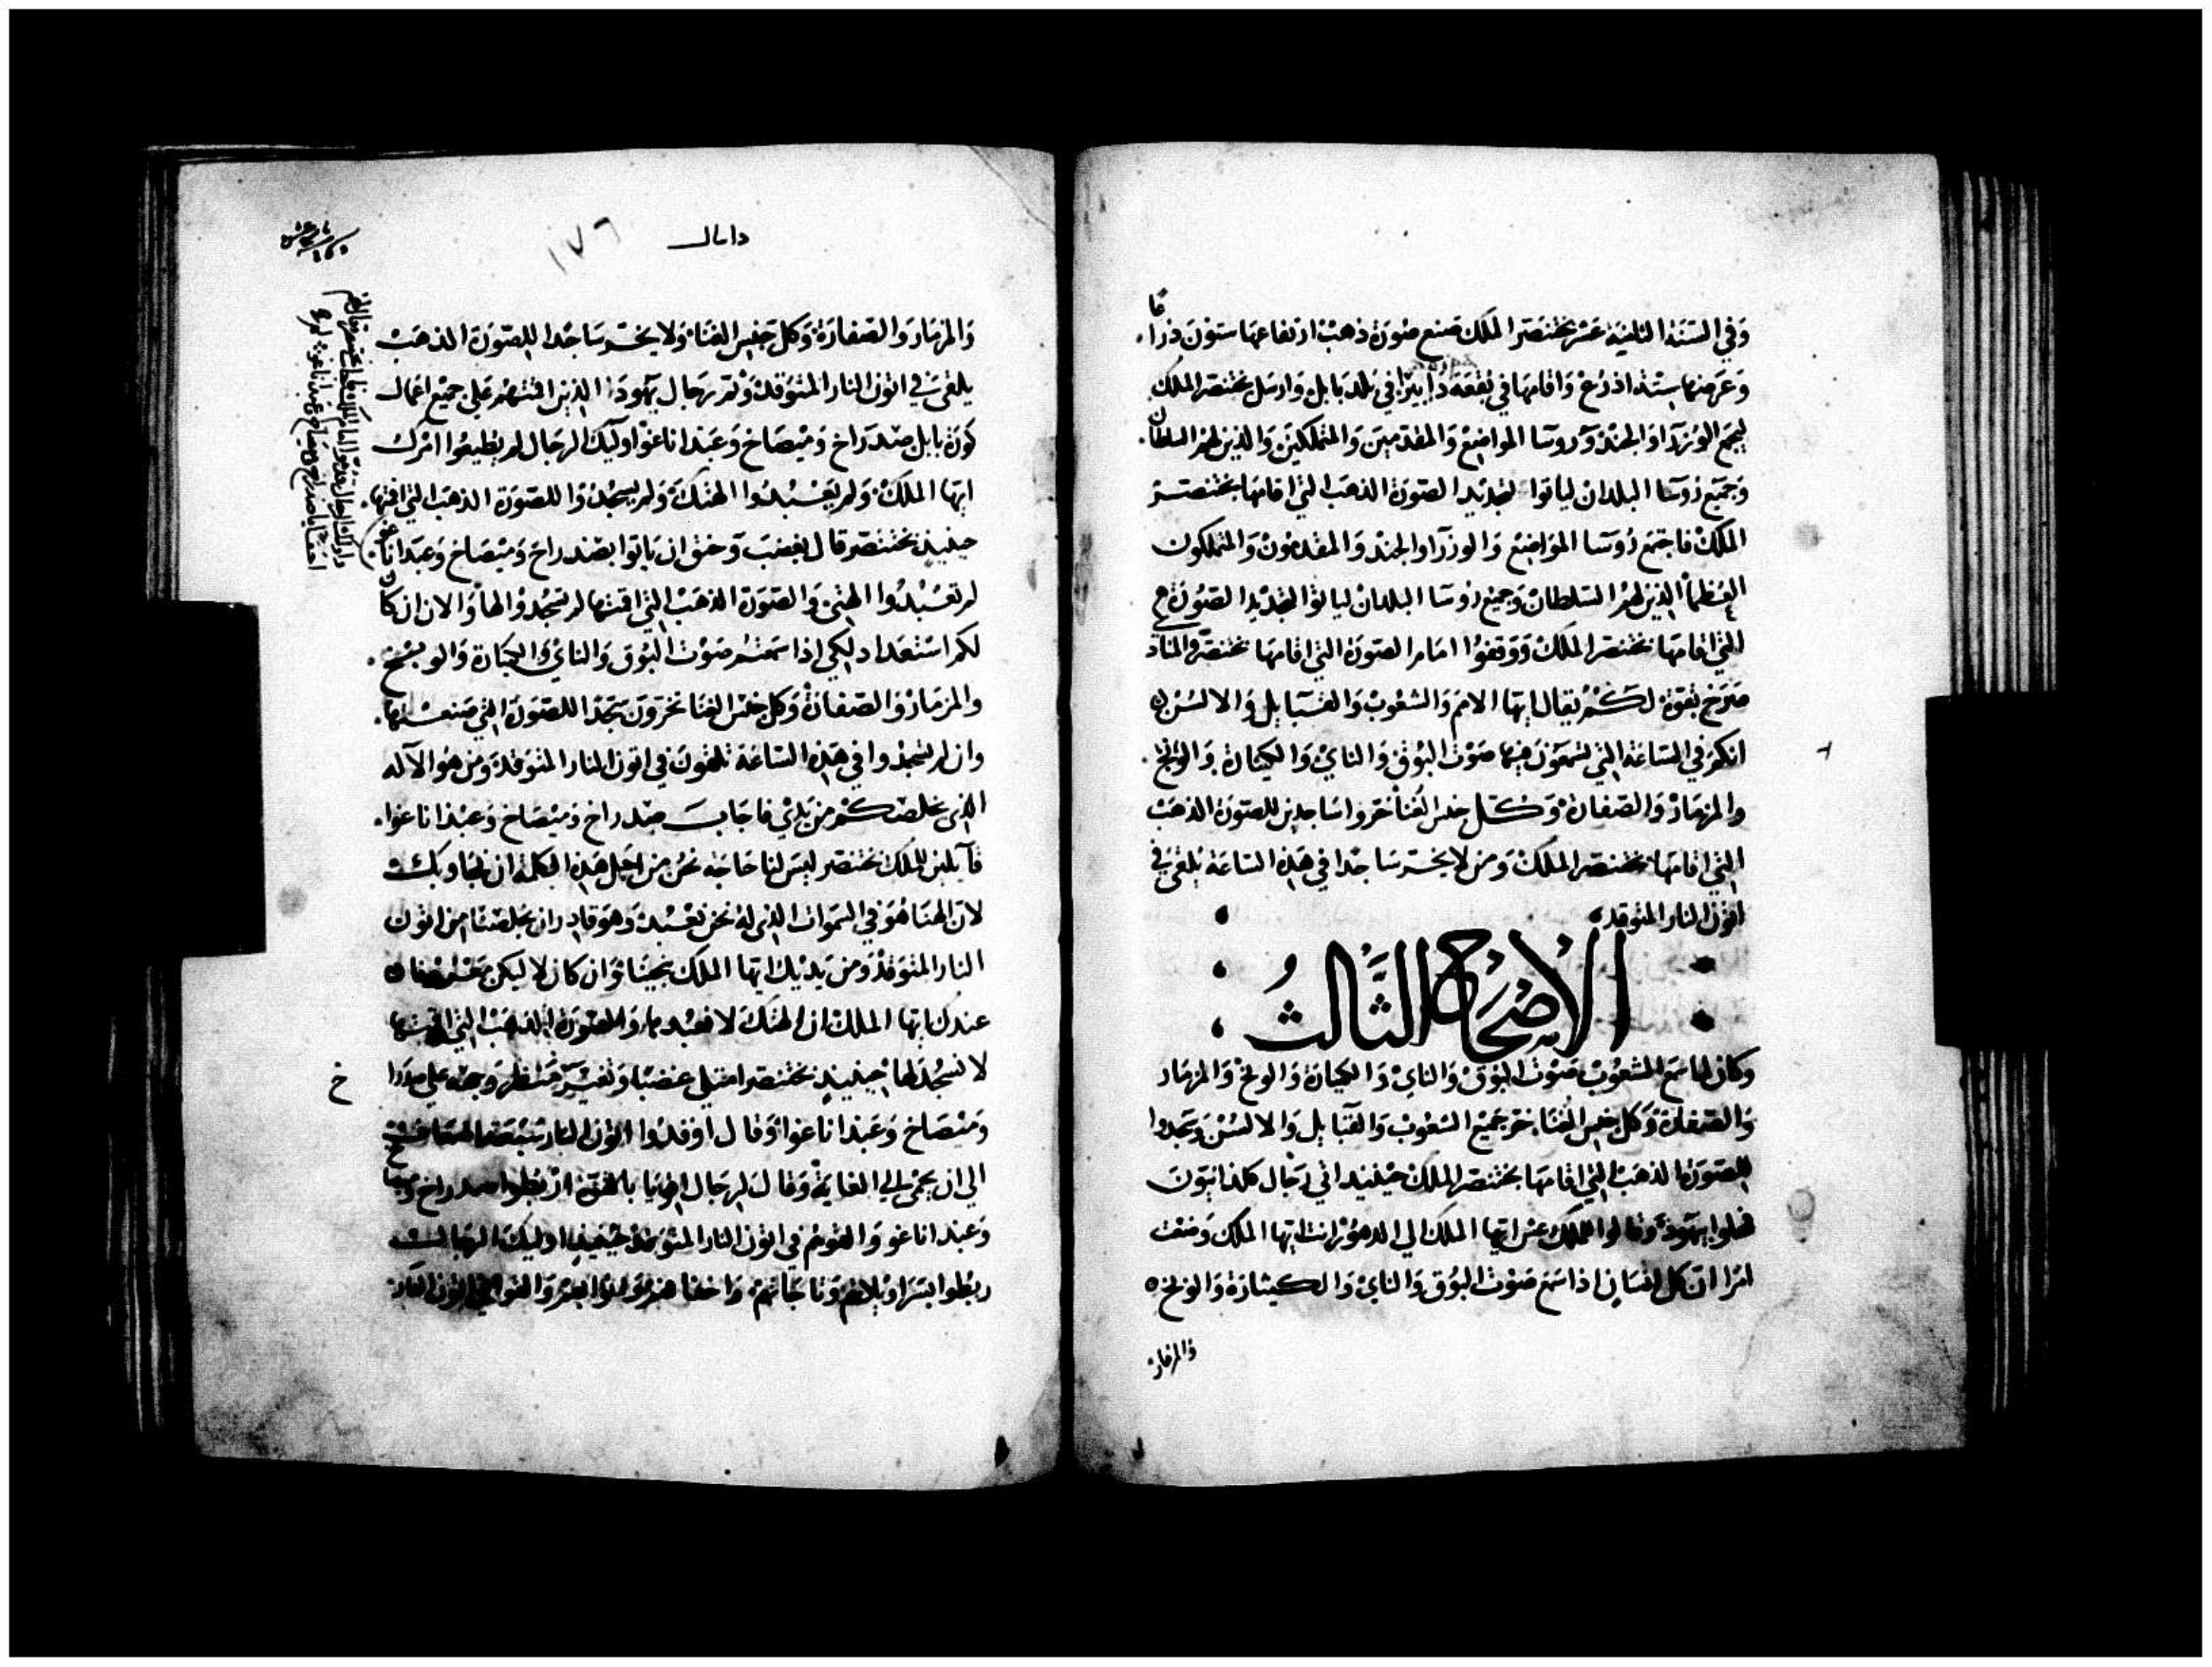 وفي السنة الثانية عشر بختنصر الملك صنع صورة ذهب ارتفاعها ستون ذراعا
وعرضها ستة اذرع واقامها في بقعة دابيرا في بلد بابل وارسل بختنصر الملك
ليجمع الوزرآ والجند وروسا المواضع والمقدمين والمتملكين والذين لهم السلطان
وجميع روسا البلدان لياتوا لتجديد الصورة الذهب التي اقامها بختنصر
الملك فاجتمع روسا المواضع والوزرا والجند والمقدمون والمتملكون
العظما الذين لهم السلطان وجميع روسا البلدان لياتوا لتجديد الصورة
التي اقامها بختنصر الملك ووقفوا امام الصورة التي اقامها بختنصر والمناد
صرخ بقوة لكم يقال ايها الامم والشعوب والقبايل والالسن
انكم في الساعة التي تسمعون فيها صوت البوق والناي والكيثارة والونج
والمزمار والصفارة وكل جنس الغنا خروا ساجدين للصورة الذهب
التي اقامها بختنصر الملك ومن لا يخر ساجدا في هذه الساعة يلقى في
اتون النار المتوقد
الاصحاح الثالث
وكان لما سمع الشعوب صوت البوق والناي والكيثارة والونج والمزمار
والصفارة وكل جنس الغنا خر جميع الشعوب والقبايل والالسن وسجدوا
للصورة الذهب التي اقامها بختنصر الملك حينيذ اتي رجال كلدانيون
فحلوا بيهود وقالوا للملك عش ايها الملك الي الدهور انت ايها الملك وضعت
امرا ان كل انسان اذا سمع صوت البوق والناي والكيثارة والونج
والمزمار
دانيال
١٧٦
والمزمار والصفارة وكل جنس الغنا ولا يخر ساجدا للصورة الذهب
يلقى في اتون النار المتوقد وثم رجال يهود الذين اقمتهم علي جميع اعمال
كورة بابل صدراخ وميصاخ وعبداناغوا اوليك الرجال لم يطيعوا امرك
ايها الملك ولم يعبدوا الهتك ولم يسجدوا للصورة الذهب التي اقمتها
حينيذ بختنصر قال بغضب وحنق ان ياتوا بصدراخ وميصاخ وعبداناغوا
لم تعبدوا الهتي والصورة الذهب التي اقمتها لم تسجدوا لها والان ان كان
لكم استعداد لكي اذا سمعتم صوت البوق والناي والكيثارة والونج
والمزمار والصفارة وكل جنس الغنا تخرون سجدا للصورة التي صنعتها
وان لم تسجدوا في هذه الساعة تلقون في اتون النار المتوقدة ومن هو الاله
الذي يخلصكم من يدي فاجاب صدراخ وميصاخ وعبداناغوا
قايلين للملك بختنصر ليس لنا حاجة نحن من اجل هذه الكلمة ان نجاوبك
لان الهنا هو في السموات الذي له نحن نعبد وهو قادر ان يخلصنا من اتون
النار المتوقد ومن يديك ايها الملك ينجينا وان كان لا ليكن
عندك ايها الملك ان الهتك لا نعبدها والصورة الذهب التي اقمتها
لا نسجد لها حينيذ بختنصر امتلى غضبا وتغير منظر وجهه علي صدرا
وميصاخ وعبداناغوا وقال اوقدوا اتون النار سبعة اضعاف
الي ان يحمى الى الغاية وقال لرجال اقويا بالقوة اربطوا صدراخ وميصا
وعبداناغو والقوهم في اتون النار المتوقد حينيذ اوليك الرجال
ربطوا بسراويلاتهم وتاجاتهم واخفافهم